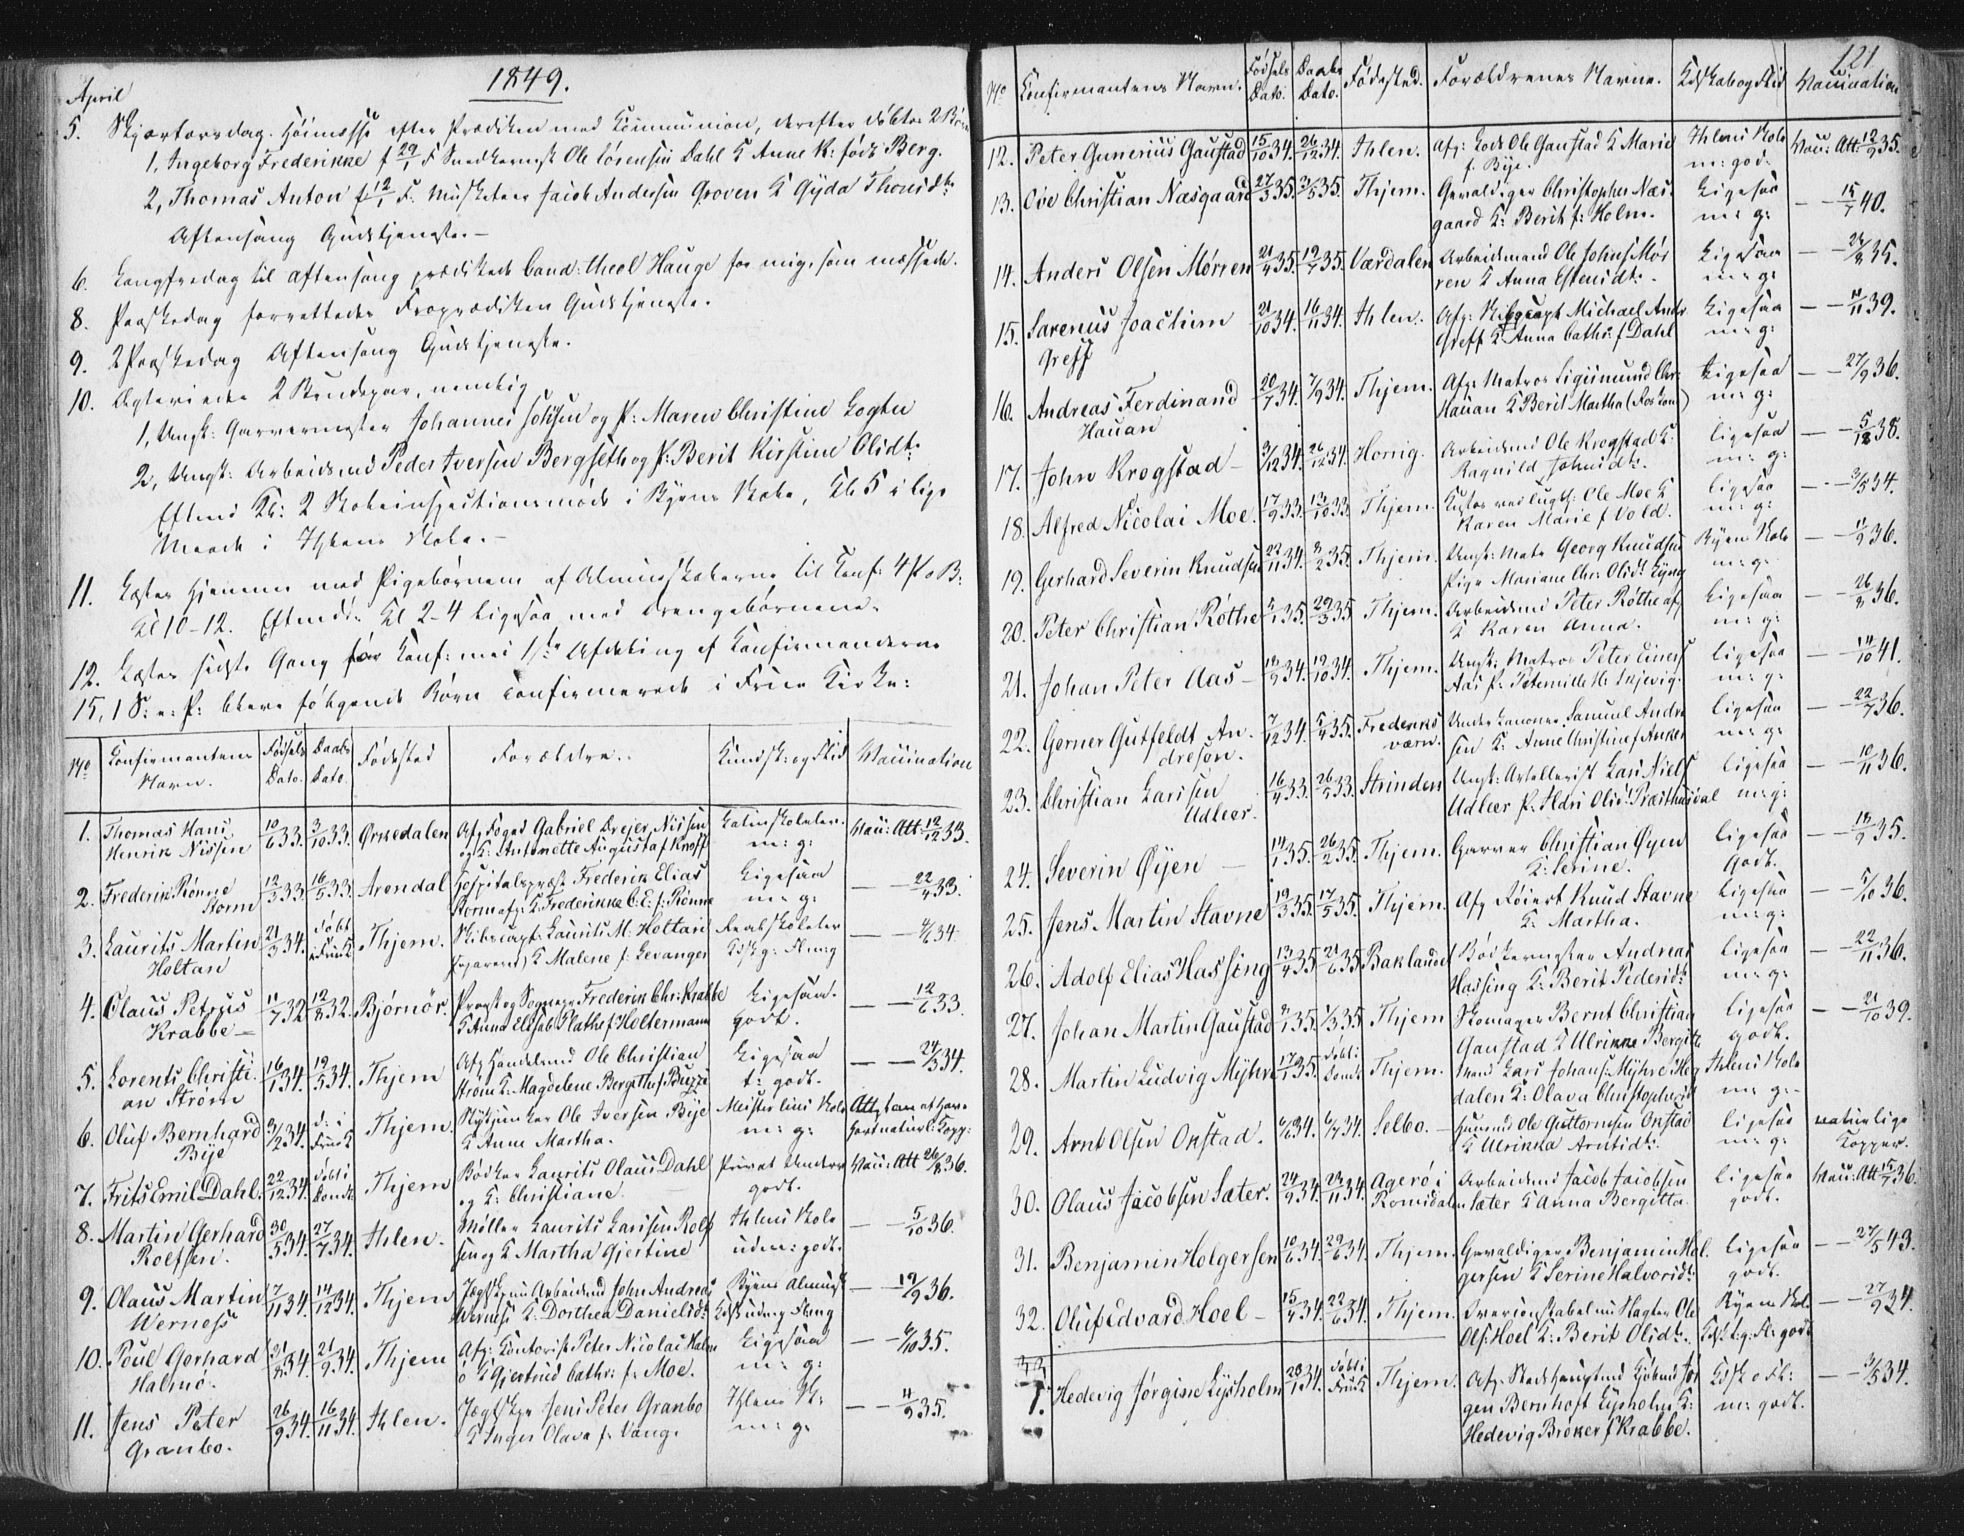 1849.
April
5. Skjærtorsdag. Høimesse efter Prædiken med Communion, derefter døbtes 2 Børn
1, Ingeborg Frederikke f 29/1 F Snedkermst Ole Sørensen Dahl & Anne K: født Berg.
2, Thomas Anton f 12/1 F. Musketeer Jacob Andersen Groven & Gyda Thonsdtr
Aftensang Gudstjeneste. –
6. Langfredag til Aftensang prædikede Cand: theol Hauge for mig, som messede.
8. Paaskedag forrettedes Froprædiken Gudstjeneste.
9. 2 Paaskedag Aftensang Gudstjeneste.
10. Ægteviede 2 Brudepar, nemlig
1, Ungk: Garvermester Johannes Solsen og P: Maren Christine Logten
2, Ungk: Arbeidsmd Peder Iversen Bergseth og P: Berit Kirstine Olsdtr
Eftmd Kl: 2 Skoleinspectionsmøde i Byens Skole, Kl 5 i lige
Maade i Ihlens Skole. –
11. Læste hjemme med Pigebørnene af Almueskolerne til Conf:
Kl 10-12. Eftmd: Kl 2-4 ligesaa med Drengebørnene.
12. Læste sidste Gang før Conf: med 1ste Afdeling af Confirmanderne
15, 1 S: e: P: bleve følgende Børn confirmerede i Frue Kirke:
No Confirmantens Navn. Fødsels Dato. Daabs Dato. Fødested Forældre. Kundsk: og Flid Vaccination
1. Thomas Hans Henrik Nissen 10/6 33. 3/10 33. Orkedalen Afg Foged Gabriel Dreyer Nissen og K: Antonette Augusta f Knoff Latinskoleelev. m: g: Vacc: Att: 12/12 33.
2. Frederik Rønne Storm 12/3 33. 16/5 33. Arendal Hospitalspræst Frederik Elias Storm afg: K Frederikke C. E. f: Rønne Ligesaa m: g: – – 22/4 33.
3. Laurits Martin Holtan 21/3 34. døbt i Frue K Thjem. Skibscapt: Laurits M. Holtan & Malene f: Levanger Realskoleelev – – 34.
4. Claus Petrus Krabbe – 11/7 32. 12/8 32. Bjørnør. Provst og Sognepr Frederik Chr: Krabbe & Anna Elisab Plathe f Holtermann Ligesaa. godt. – – 12/6 33.
5. Lorents Christian Strøm 16/1 34. 19/5 34. Thjem Afg Handelsmd Ole Christian Strøm & Magdelene Bergithe f Buzzi Ligesaa t: godt. – – 24/3 34.
6. Oluf Bernhard Bye 3/2 34. d: i Frue K Thjem. Ole Iversen Bye & Anne Martha. Meisterlins Skole m: g: Att for at have havt naturl: Kopp:
7. Frits Emil Dahl. 22/12 34. døbt i Domk Thjem Bødker Laurits Olaus Dahl og K: Christiane. Privat Underv godt. Vacc: Att 26/8 36.
8. Martin Gerhard Rolfsen. 30/5 34. 27/7 34. Ihlen. Møller Laurits Larsen Rolfsen og K Martha Gjertine Ihlens Skole udm: godt. – – 5/10 36.
9. Olaus Martin Werness 7/11 34. 14/12 34. Thjem Arbeidsmd John Andreas Werness K: Dorthea Danielsdtr Byens Almuesk – – 19/9 36.
10. Poul Gerhard Halmø. 31/8 34. 21/9 34. Thjem Afg: Contorist Peter Nicolai Halmø & Gjertrud Cathr: f: Moe. Ligesaa m: g: – – 35.
11. Jens Peter Granbo. 26/9 34. 16/11 34. Ihlen. Jens Peter Granbo & Inger Olava f: Vang. Ihlens Sk: m: g: – – 4/9 35.
121
No Confirmantens Navn. Fødsels Dato. Daabs Dato. Fødested. Forældrenes Navne. Kdskab og Flid Vaccination
12. Peter Gunerius Gaustad 15/10 34. 26/12 34. Ihlen. Afg: Lods Ole Gaustad & Marie f. Bye. Ihlens Skole m: god. Vacc: Att: 12/9 35.
13. Ove Christian Næsgaard 27/3 35. 3/5 35. Thjem. Gevaldiger Christopher Næsgaard K: Berit f: Holm. Ligesaa m: g: – – 15/7 40.
14. Anders Olsen Mørren 21/4 35. 19/7 35. Værdalen Arbeidsmand Ole Johnsen Mørren & Anna Estensdtr. Ligesaa m: g: – 24/8 35.
15. Sarenus Joachim Greff 21/10 34. 16/11 34. Ihlen. Afg: Skibscapt Michael Andr Greff & Anna Cathr: f Dahl Ligesaa m: g: – – 11/11 39.
16. Andreas Ferdinand Hauan 20/7 34. 7/9 34. Thjem. Afg: Matros Sigismund Chr: Hauan & Berit Martha (Foskum) Ligesaa m: g: – – 27/9 36.
17. John Krogstad – 3/12 34. 26/12 34. Horrig. Arbeidsmd Ole Krogstad & Ragnild Johnsdtr. ligesaa m: g: – – 5/18 38.
18. Alfred Nicolai Moe. 17/9 33. 13/10 33. Thjem. Ole Moe & Karen Marie f Vold. ligesaa m: g: – – 3/5 34.
19. Gerhard Severin Knudsen 22/11 34. 8/2 35. Thjem. Ungk: Mats Georg Knudsen Pige Mariane Chr: Olsdtr Lyng Byens Skole m: g: – – 11/9 36.
20. Peter Christian Røthe 5/1 35. 29/3 35 Thjem. Arbeidsmd Peter Røthe afg & Karen Anna. Ligesaa m: g: – – 26/8 36.
21. Johan Peter Aas – 18/9 34. 19/10 34. Thjem. Ungk: Matros Peter Einers Aas P: Peternille H: Skjevig. ligesaa m: g: – – 14/10 41.
22. Gerner Gutfeldt Andresen. 7/12 34. 5/4 35. Frederiksværn. Underkanoner Samuel Andresen K: Anne Christine f Anker ligesaa m: g: – – 22/7 36.
23. Christian Larssen Udleer. 16/4 33. 26/5 33. Strinden Ungk: Artellerist Lars Niels Udleer P. Ildri Olsdtr Præsthusdal ligesaa m: g: – 10/11 36.
24. Severin Øyen – 14/1 35. 26/2 35. Thjem. Garver Christian Øyen K: Serine. ligesaa Godt. – – 18/9 35.
25. Jens Martin Stavne 19/3 35. 17/5 35. Thjem. Afg Knud Stavne & Martha. ligesaa m: g: – – 5/10 36.
26. Adolf Elias Hassing 13/4 35. 21/6 35. Baklandet Bødkermester Andreas Hassing K: Berit Pedersdtr ligesaa m: g: – – 22/11 36.
27. Johan Martin Gaustad 9/1 35. 1/3 35. Thjem Skomager Bernt Christian Gaustad & Ulrikke Bergitte ligesaa godt. – – 21/10 39.
28. Martin Ludvig Myhre 17/1 35. døbt i Domk Thjem. Lars Johans: Myhre Herdalen K: Olava Christophersd Ihlens Skole m: g: –
29. Arnt Olsen Onstad. 34. 34. Selbo. – Huusmd Ole Guttormsen Onstad & Ulrikka Arntsdtr. ligesaa m: g: naturlige Kopper.
30. Olaus Jacobsen Sæter. 24/9 34. 23/11 34. Agerø i Romsdalen Arbeidsmd Jacob Jacobsen Sæter & Anna Bergitta. ligesaa godt. Vacc: Att 15/7 36.
31. Benjamin Holgersen 10/6 34. 29/6 34. Thjem. Gevaldiger Benjamin Holgersen & Serine Halvorsdtr ligesaa godt. – – 27/5 43.
32. Oluf Edvard Hoel – 15/4 34. 22/6 34. Thjem. Ole Ols: Hoel K: Berit Olsdtr. Byens Skole Kdsk t: g: Fl: godt – – 27/9 34.
33
1. Hedevig Jørgine Lysholm 28/1 34. døbt i Frue K Thjem. Afg. Stadshauptmd Kjøbmd Jørgen Bernhoft Lysholm K: Hedevig Brøker f Krabbe. Kdsk o Fl: m: godt. – – 3/5 34.